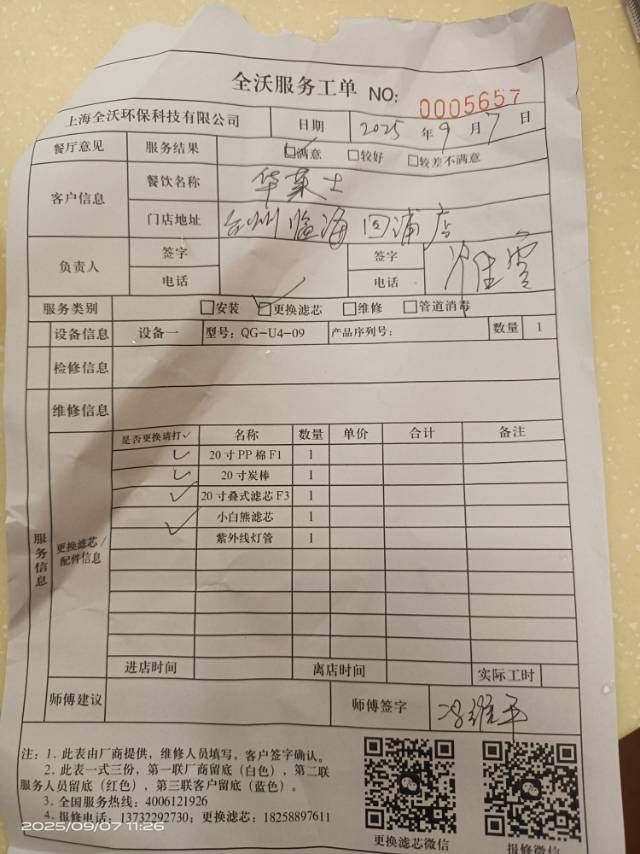 全沃服务工单 NO: 0005657
上海全沃环保科技有限公司 日期 2025 年 9 月 7 日
餐厅意见 服务结果 ☑满意 □较好 □较差不满意
客户信息 餐饮名称 华莱士
门店地址 台州临海回浦店
负责人 签字 签字
电话 电话
服务类别 □安装 ☑更换滤芯 □维修 □管道消毒
设备信息 设备一 型号: QG-U4-09 产品序列号: 数量 1
检修信息
维修信息
服务信息 更换滤芯/配件信息
是否更换请打✓ 名称 数量 单价 合计 备注
✓ 20寸PP棉F1 1
✓ 20寸炭棒 1
✓ 20寸叠式滤芯F3 1
✓ 小白熊滤芯 1
紫外线灯管 1
进店时间 离店时间 实际工时
师傅建议 师傅签字 冯维平
注: 1. 此表由厂商提供, 维修人员填写, 客户签字确认。
2. 此表一式三份, 第一联厂商留底(白色), 第二联
服务人员留底(红色), 第三联客户留底(蓝色)。
3. 全国服务热线: 4006121926
4. 报修电话: 13732292730; 更换滤芯: 18258897611
更换滤芯微信 报修微信
2025/09/07 11:26